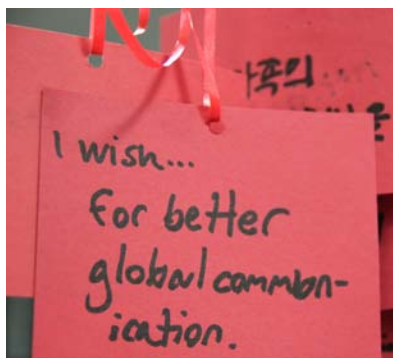 I wish...
for better
global commun-
ication.